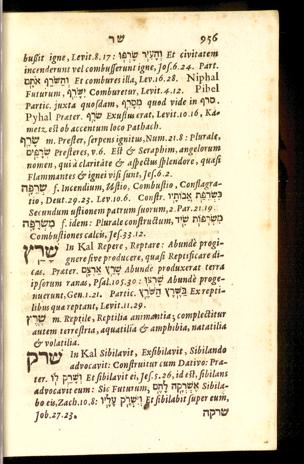 שר 956
bussit igne, Levit.8.17: וְהָעִיר שָׂרְפוּ Et civitatem
incenderunt vel combusserunt igne, Jos.6.24. Part.
וְהַשּׂרֵף אֹתָם Et combures illa, Lev.16.28. Niphal
Futurum, יִשָּׂרֵף Comburetur, Levit.4.12. Pihel
Partic. juxta quosdam, מְסָרֵף quod vide in סרף.
Pyhal Præter. שֹׂרָף Exustus erat, Levit.10.16, Ka-
metz, est ob accentum loco Pathach.
שָׂרָף m. Prester, serpens ignitus, Num.21.8: Plurale,
שְׂרָפִים Presteres, v.6. Est & Seraphim, angelorum
nomen, qui à claritate & aspectus splendore, quasi
Flammantes & ignei visi sunt, Jes.6.2.
שְׂרֵפָה f. Incendium, Ustio, Combustio, Conflagra-
tio, Deut.29.23. Lev.10.6. Constr. בְּשְׂרֵפַת אֲבוֹתָיו
Secundum ustionem patrum suorum, 2.Par.21.19.
מִשְׂרָפָה f. idem: Plurale constructum, מִשְׂרְפוֹת שִׂיד
Combustiones calcis, Jes.33.12.
שָׁרַץ In Kal Repere, Reptare: Abundè progi-
gnere sive producere, quasi Reptificare di-
cas. Præter. שָׁרַץ אַרְצָם Abunde produxerat terra
ipsorum ranas, Psal.105.30: שָׁרְצוּ Abundè proge-
nuerunt, Gen.1.21. Partic. בַּשֶּׁרֶץ הַשֹּׁרֵץ Ex repti-
libus qua reptant, Levit.11.29.
שֶׁרֶץ m. Reptile, Reptilia animantia; complectitur
autem terrestria, aquatilia & amphibia, natatilia
& volatilia.
שָׁרַק In Kal Sibilavit, Exsibilavit, Sibilando
advocavit: Construitur cum Dativo: Præ-
ter. וְשָׁרַק לוֹ Et sibilavit ei, Jes.5.26, id est, sibilans
advocavit eum: Sic Futurum, אֶשְׁרְקָה לָהֶם Sibila-
bo eis, Zach.10.8: וְיִשְׁרֹק עָלָיו Et sibilabit super eum,
Job.27.23.
שרקה